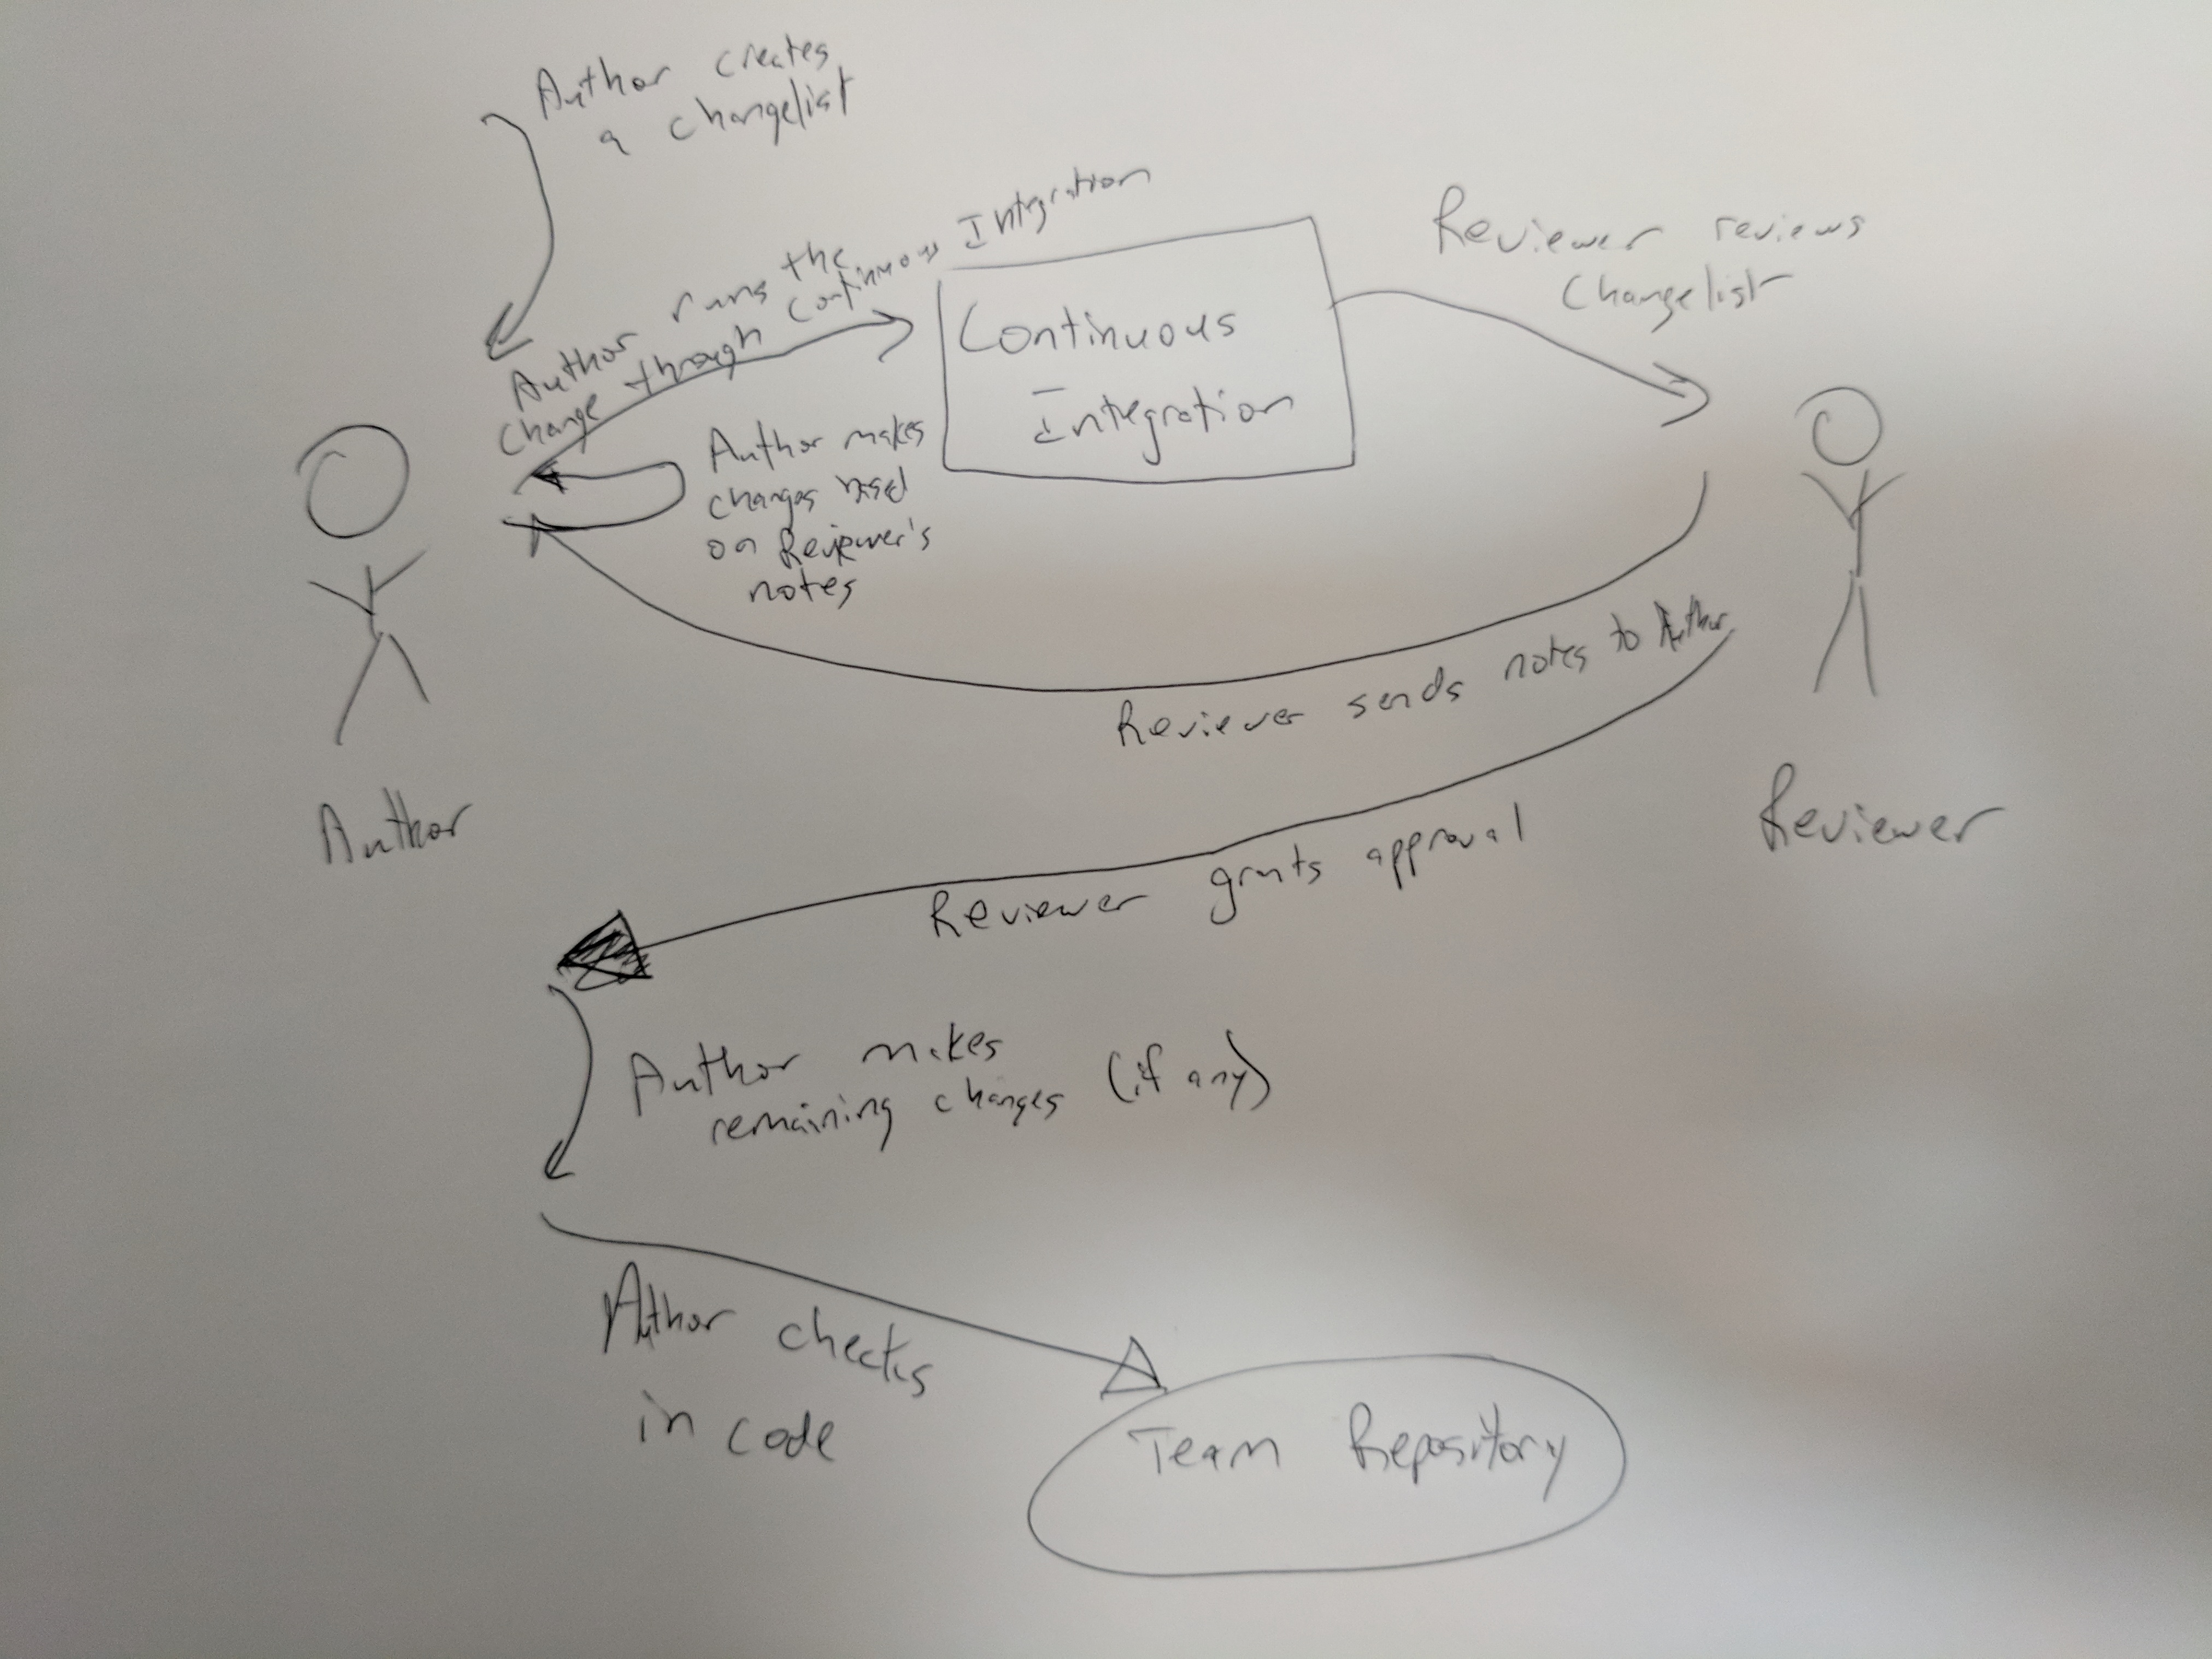 Author creates
a changelist
Author runs the
change through Continuous Integration
Continuous
Integration
Reviewer reviews
Changelist
Author makes
changes based
on Reviewer's
notes
Reviewer sends notes to Author
Author
Reviewer
Reviewer grants approval
Author makes
remaining changes (if any)
Author checks
in code
Team Repository